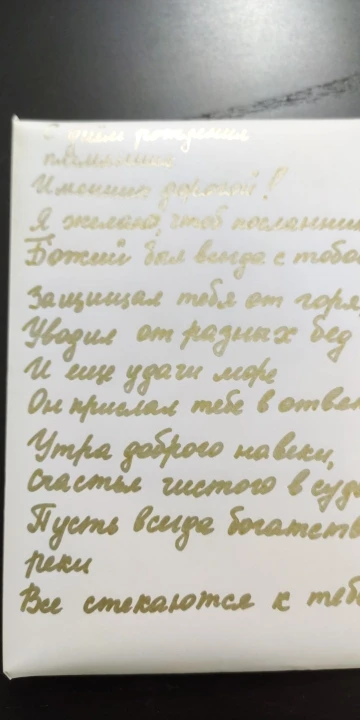 С днём рождения
племянник
Именно дорогой!
Я желаю, чтоб посланни
Божий был всегда с тобо
Защищал тебя от горя,
Уводил от разных бед
И еще удачи море
Он прислал тебе в ответ
Утра доброго навеки,
Счастья чистого в судь
Пусть всегда богатств
реки
Все стекаются к тебе